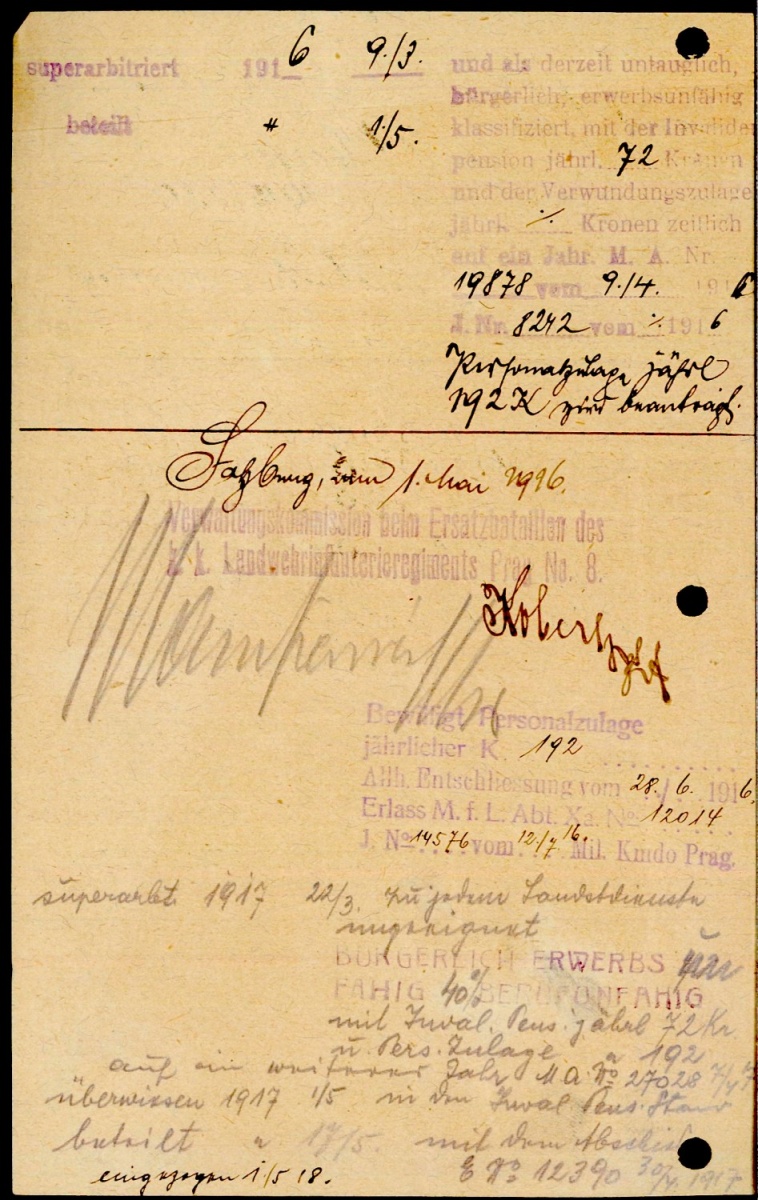 superarbitriert 1916 9./3. und als derzeit untauglich,
bürgerlich, erwerbsunfähig
beteilt " 1./5. klassifiziert, mit der Invaliden
pension jährl. 72 Kronen
und der Verwundungszulage
jährl. ·/. Kronen zeitlich
auf ein Jahr. M. A. Nr.
19878 vom 9./4. 1916
J. Nr. 8242 vom ·/. 1916
Personalzulage jährl
192 K wird beantragt.
Salzburg, am 1. Mai 1916.
Verwaltungskommission beim Ersatzbataillon des
k. k. Landwehrinfanterieregiments Prag No. 8.
Bewilligt Personalzulage
jährlicher K. 192
Allh. Entschliessung vom 28./6. 1916.
Erlass M. f. L. Abt. Xa. No 12014
J. No 14576 vom 12./7 16. Mil. Kmdo Prag.
superarbt. 1917 22/3. zu jedem Landstdienste
ungeeignet
BÜRGERLICH ERWERBS un
FÄHIG 40% BERUFUNFÄHIG
mit Inval. Pens. jährl 72 Kr.
u. Pers. Zulage " 192
auf ein weiteres Jahr M A No 27028 7/4 7
überwiesen 1917 1/5 in den Inval Pens. Stand
beteilt " 17/5. mit dem Abschied
E No 12390 30/4 1917
eingezogen 1/5 18.